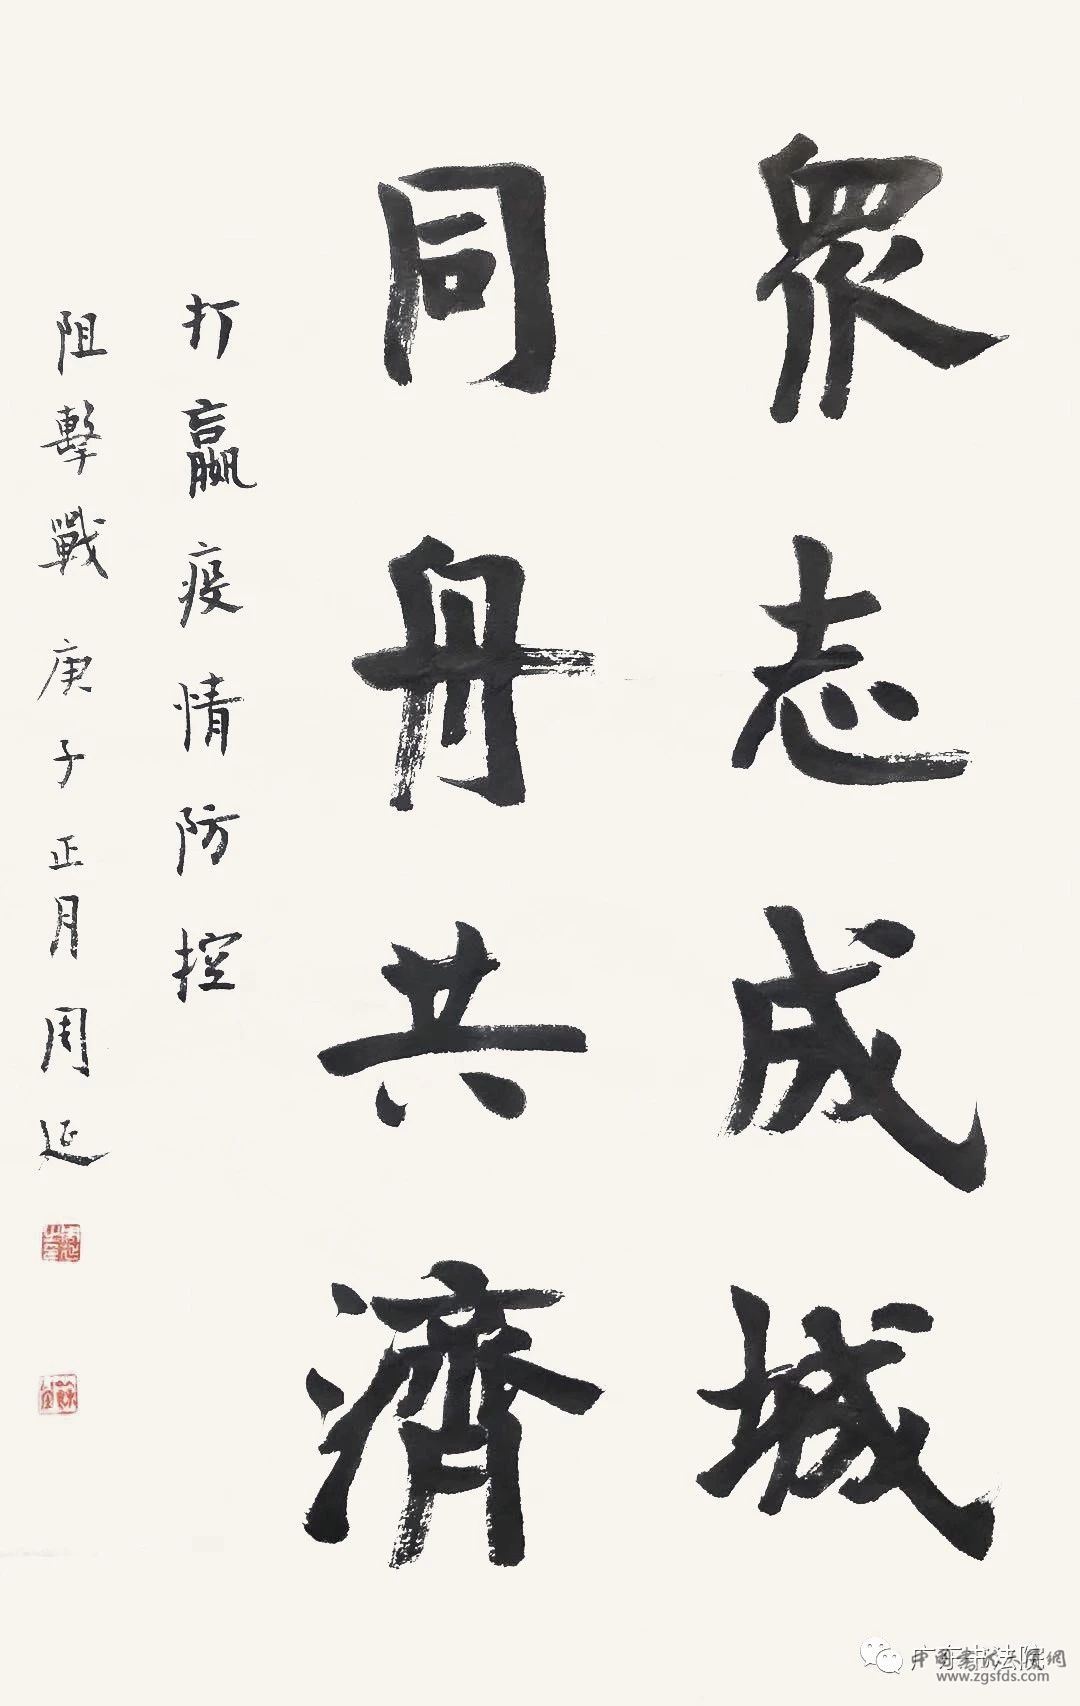 眾志成城
同舟共濟
打贏疫情防控
阻擊戰庚子正月周延
广东书法院
www.zgsfds.com